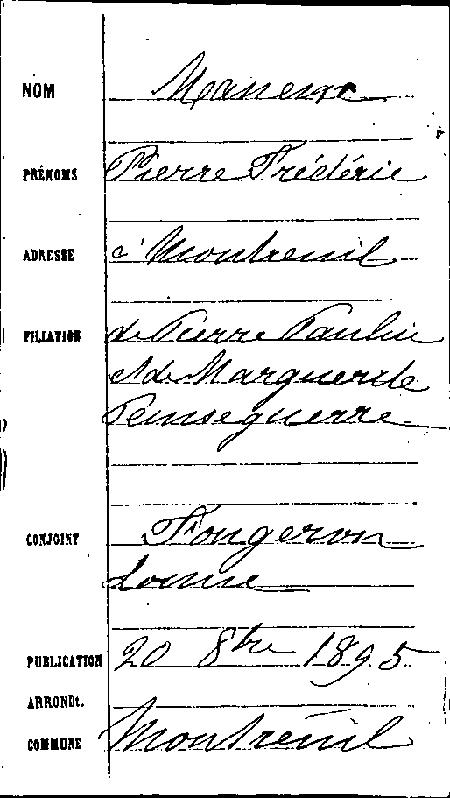 NOM Maneux
PRÉNOMS Pierre Frédéric
ADRESSE à Montreuil
FILIATION de Pierre Paulin
et de Marguerite
CONJOINT Fougeron
Louise
PUBLICATION 20 8bre 1895
ARRONDt.
COMMUNE Montreuil